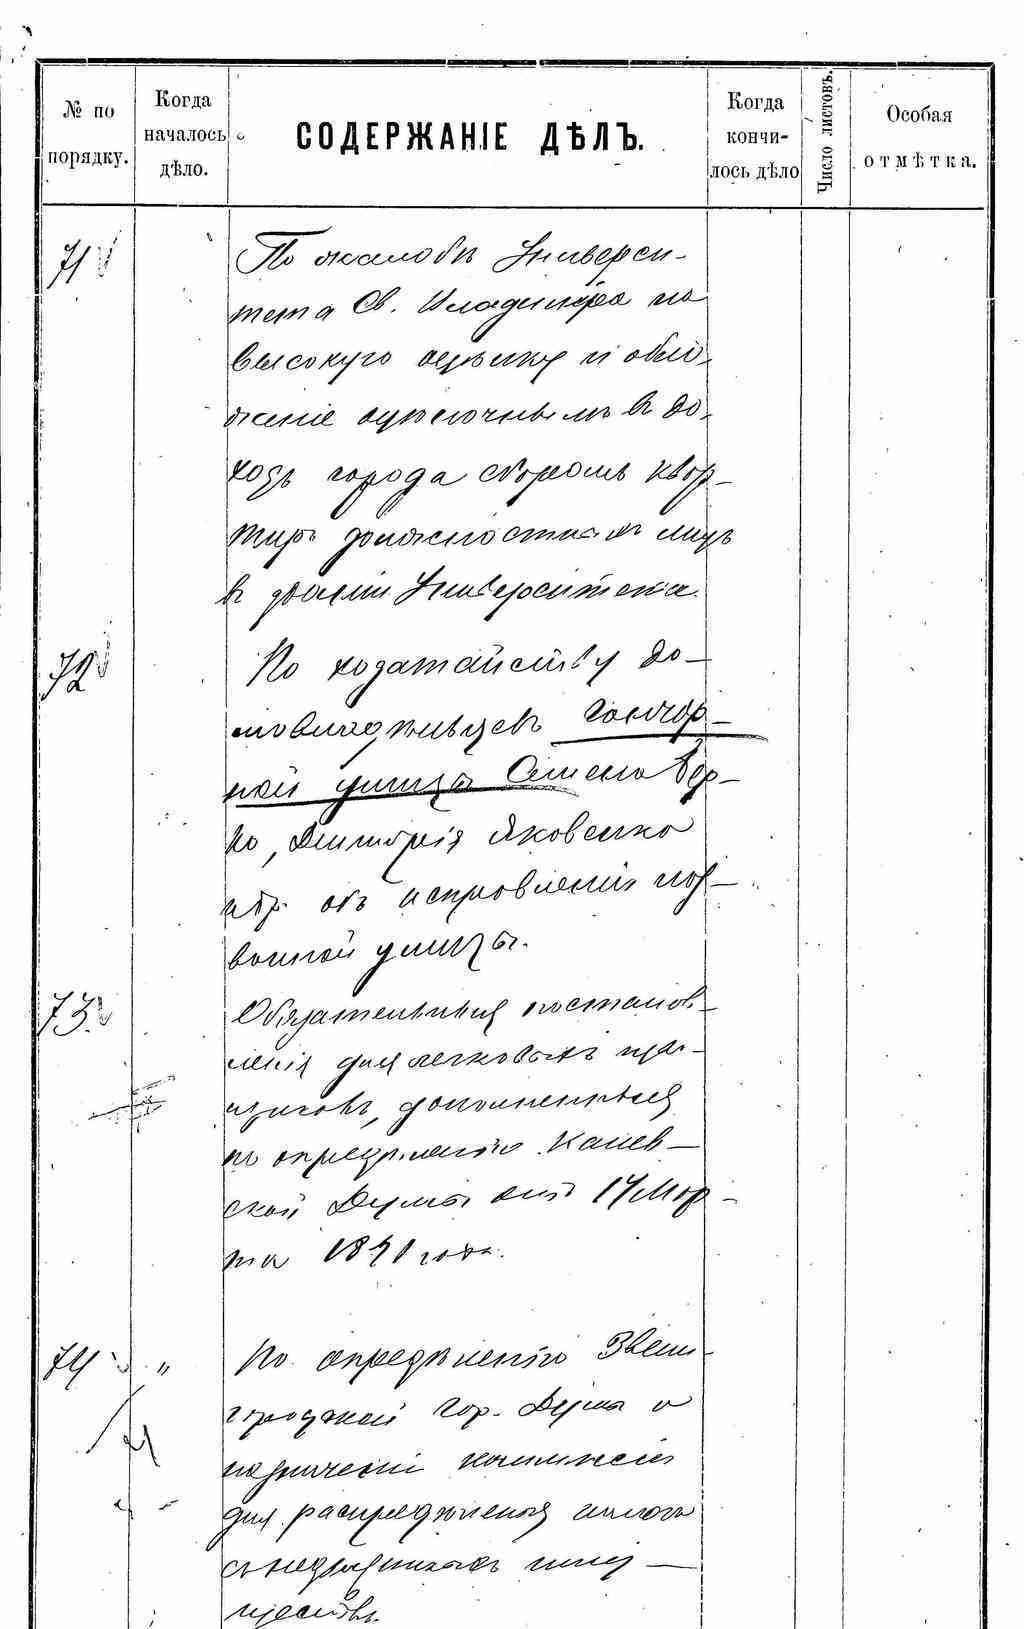 № по порядку.
Когда началось дѣло.
СОДЕРЖАНІЕ ДѢЛЪ.
Когда кончи-лось дѣло
Число листовъ.
Особая отмѣтка.
71
По жалобѣ Универси-
тета Св. Владиміра на
высокую оцѣнку и обло-
женіе оцѣночнымъ въ до-
ходъ города сборомъ квар-
тиръ должностныхъ лицъ
въ зданіи Университета.
72
По ходатайству до-
мовладѣльцевъ Гончар-
ной улицы Семена Вер-
по, Дмитрія Яковенко
и др. объ исправленіи наз-
ванной улицы.
73.
Обязательныя постанов-
ленія для легковыхъ из-
возчиковъ, дополненныя
по опредѣленію Канев-
ской Думы отъ 14 Мар-
та 1891 года.
74 "
По опредѣленію Звени-
городской Гор. Думы о
назначеніи коммисіи
для распредѣленія налога
съ недвижимыхъ иму-
ществъ.